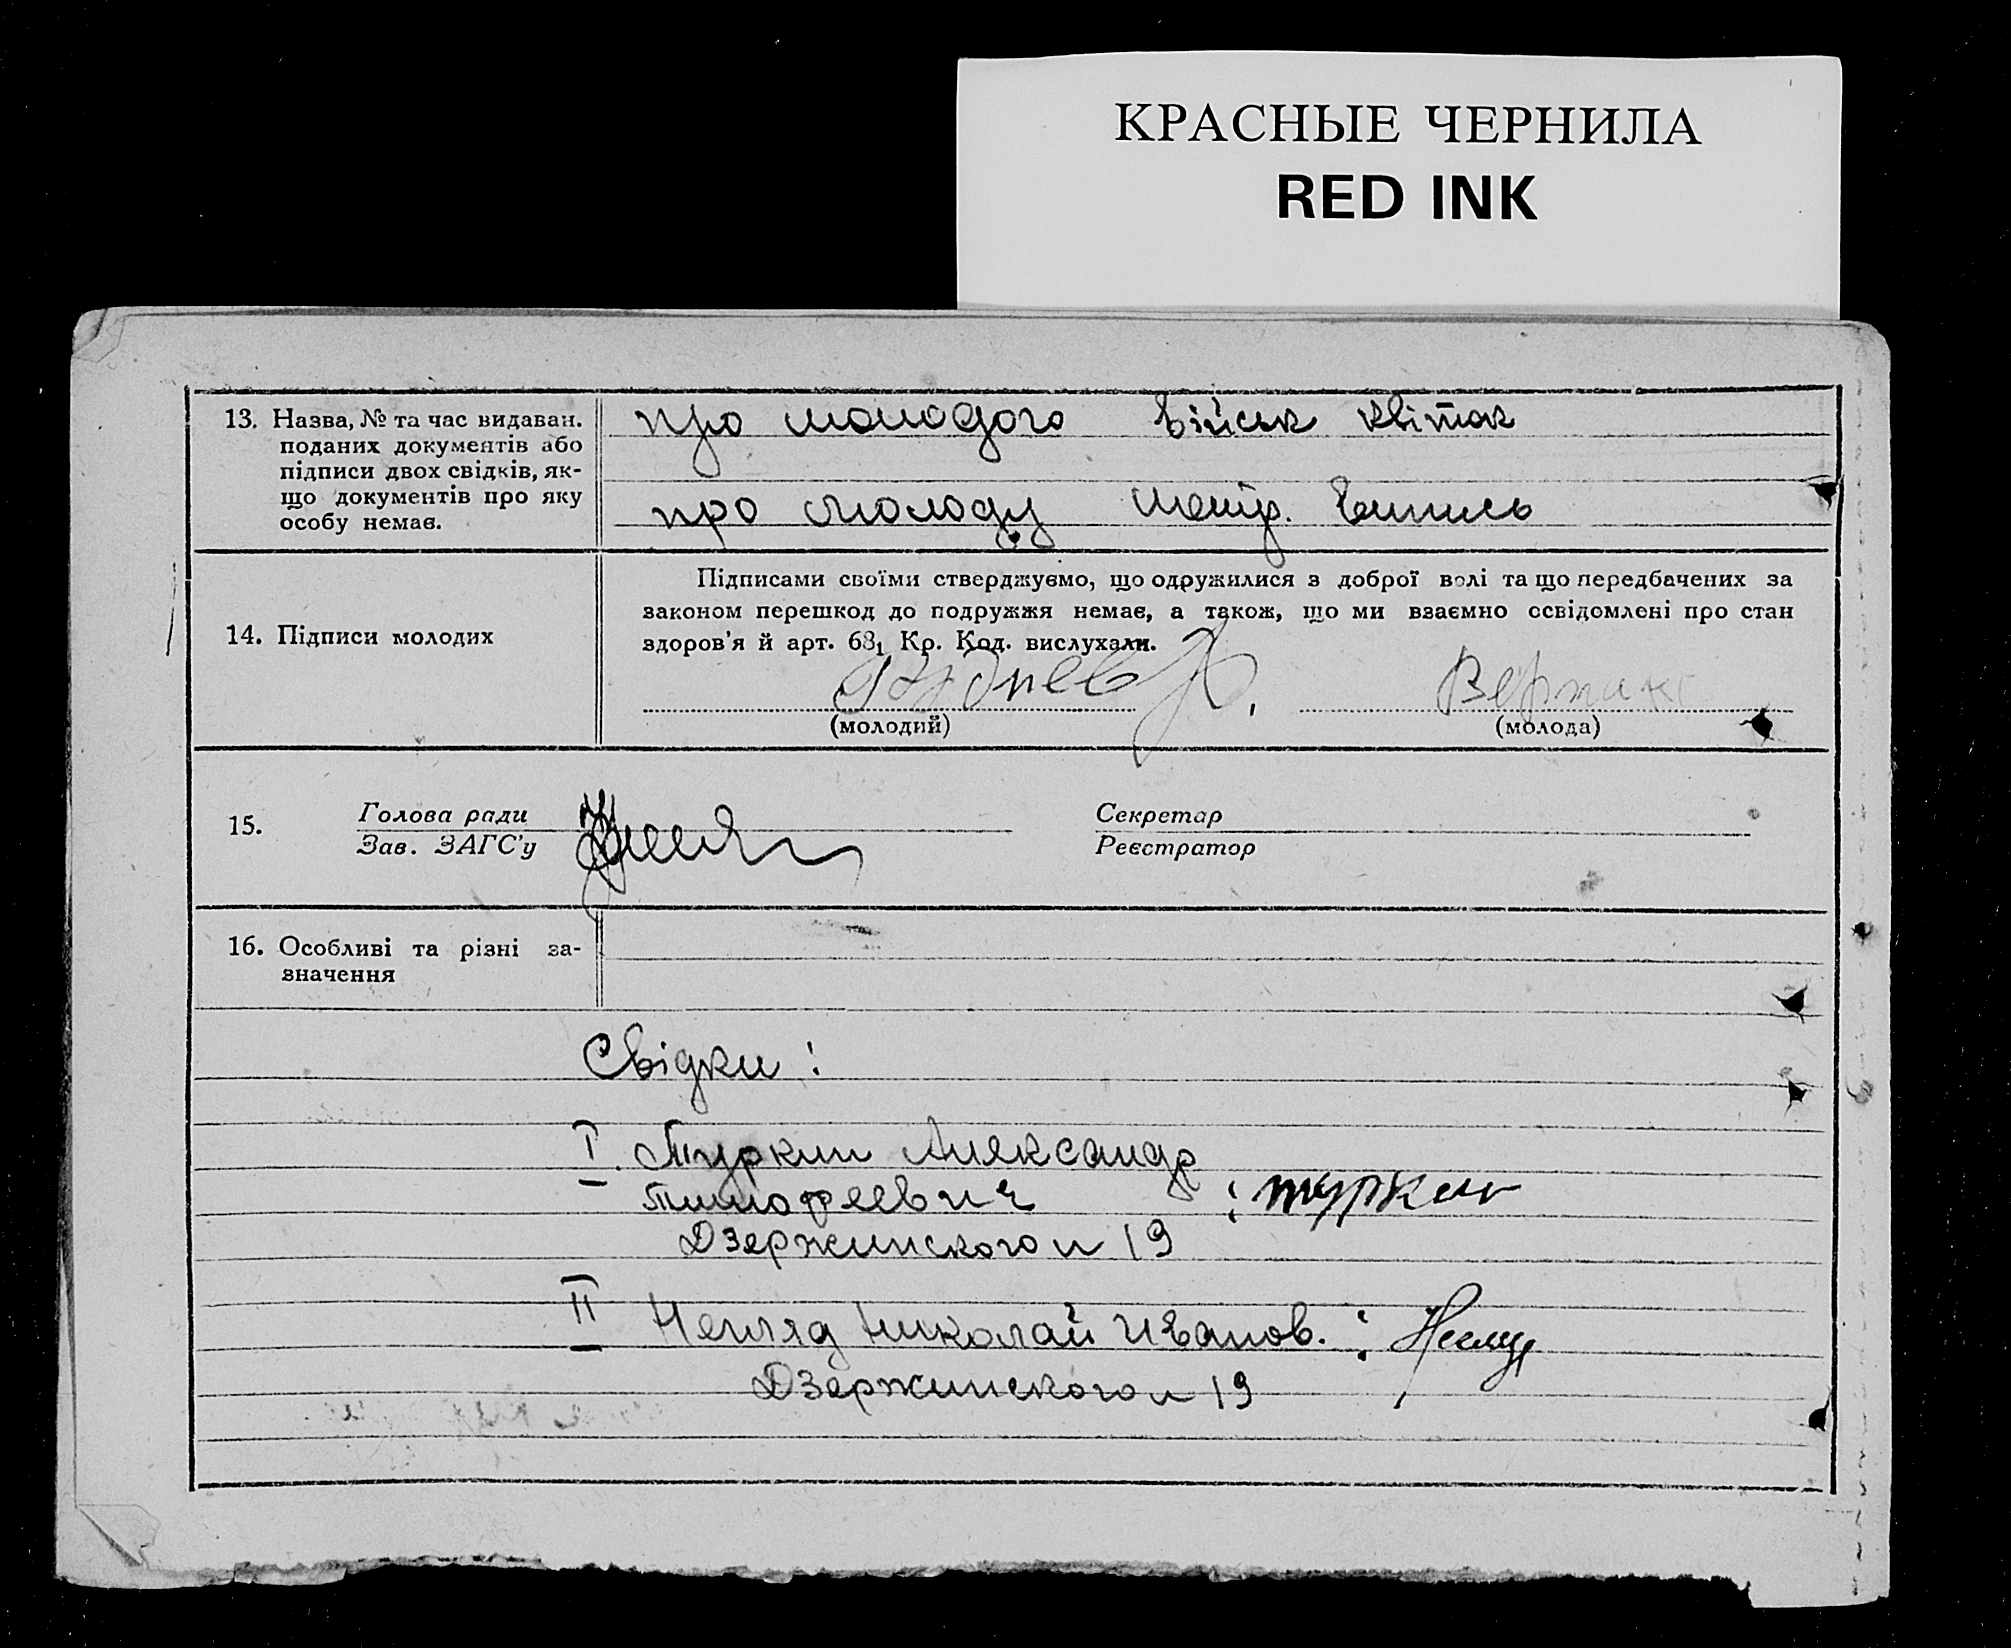 КРАСНЫЕ ЧЕРНИЛА
RED INK
13. Назва, № та час видаван.
поданих документів або
підписи двох свідків, як-
що документів про яку
особу немає.
про молодого військ квіток
про молоду метр. випись
14. Підписи молодих
Підписами своїми стверджуємо, що одружилися з доброї волі та що передбачених за
законом перешкод до подружжя немає, а також, що ми взаємно освідомлені про стан
здоров'я й арт. 68₁ Кр. Код. вислухали.
(молодий)
(молода)
15.
Голова ради
Зав. ЗАГС'у
Секретар
Реєстратор
16. Особливі та різні за-
значення
Свідки:
I. Туркин Александр
Тимофеевич : туркин
Дзержинского 19
II Николай Иванов. :
Дзержинского 19